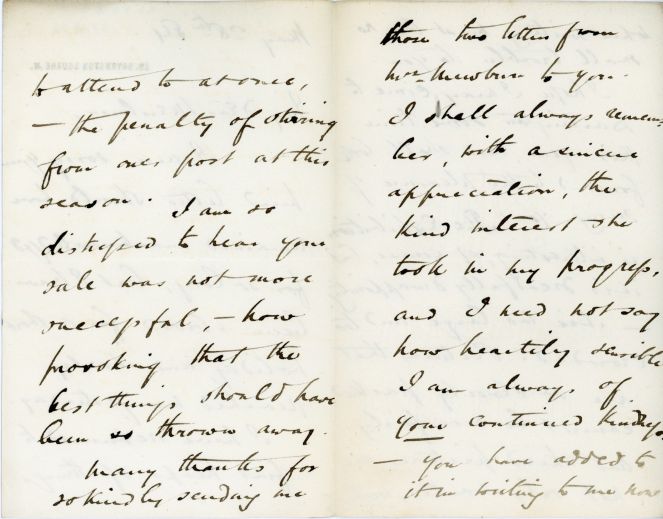 to attend to at once,
— the penalty of stirring
from ones post at this
season. I am so
distressed to hear your
sale was not more
successful, — how
provoking that the
best things should have
been so thrown away.
Many thanks for
so kindly sending me
those two letters from
Mrs Newburn to you.
I shall always remem
her, with a sincere
appreciation, the
kind interest she
took in my progress,
and I need not say
how heartily sensible
I am always of
your continued kindness
— you have added to
it in writing to me now